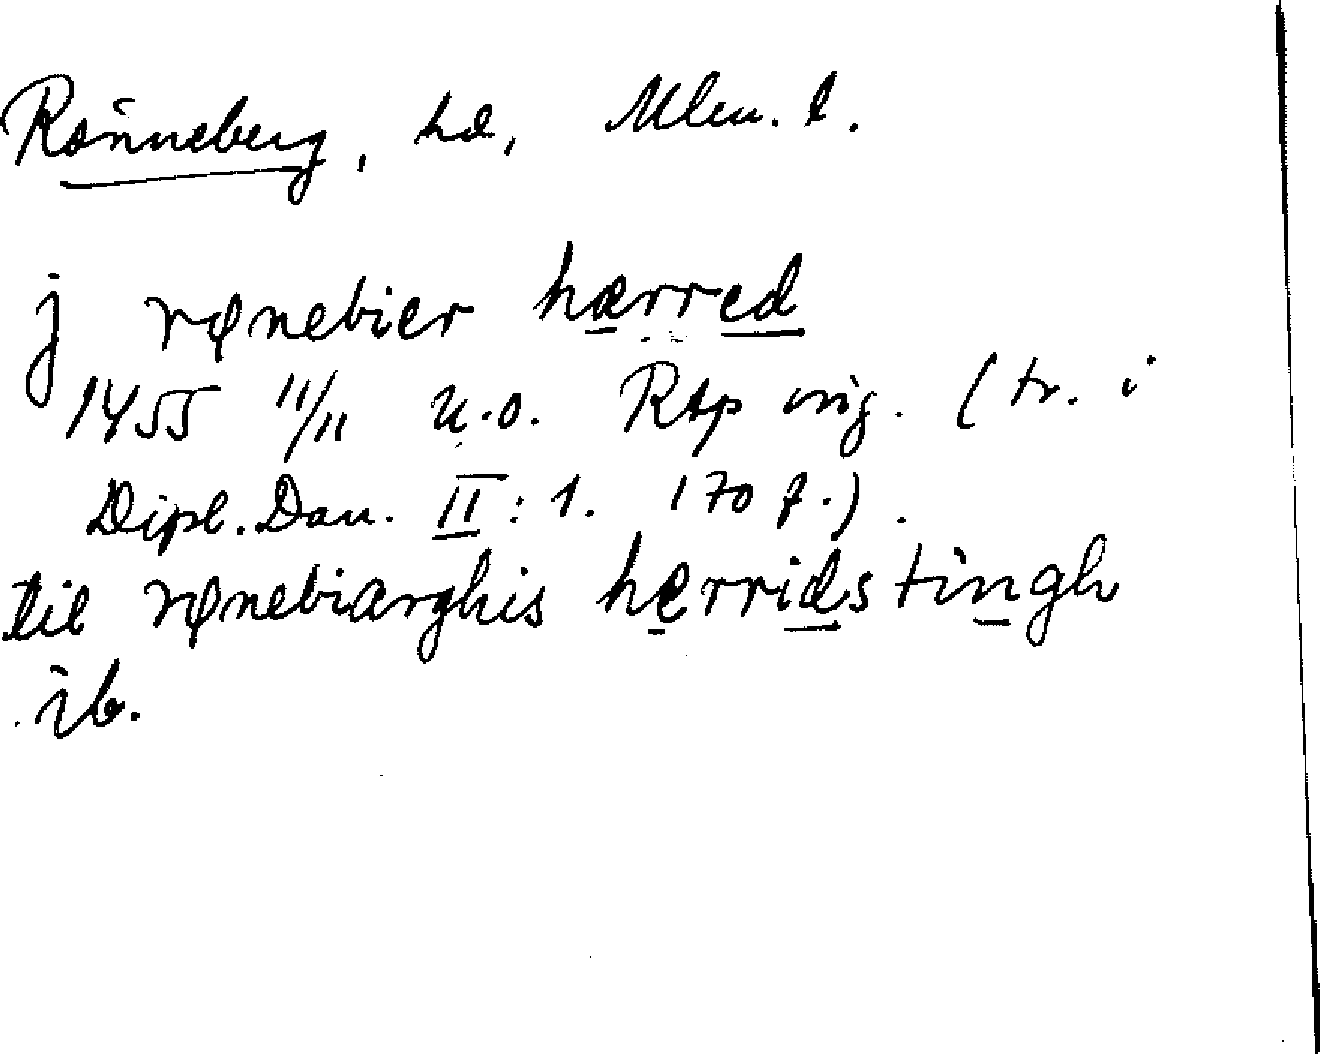 Rönneberg, hd, Mlm. l.
j rønebier hærred
1455 11/11 u.o. Rap orig. (tr. i
Dipl. Dan. II: 1. 170 f.).
til rønebiærghis hærridstingh
ib.